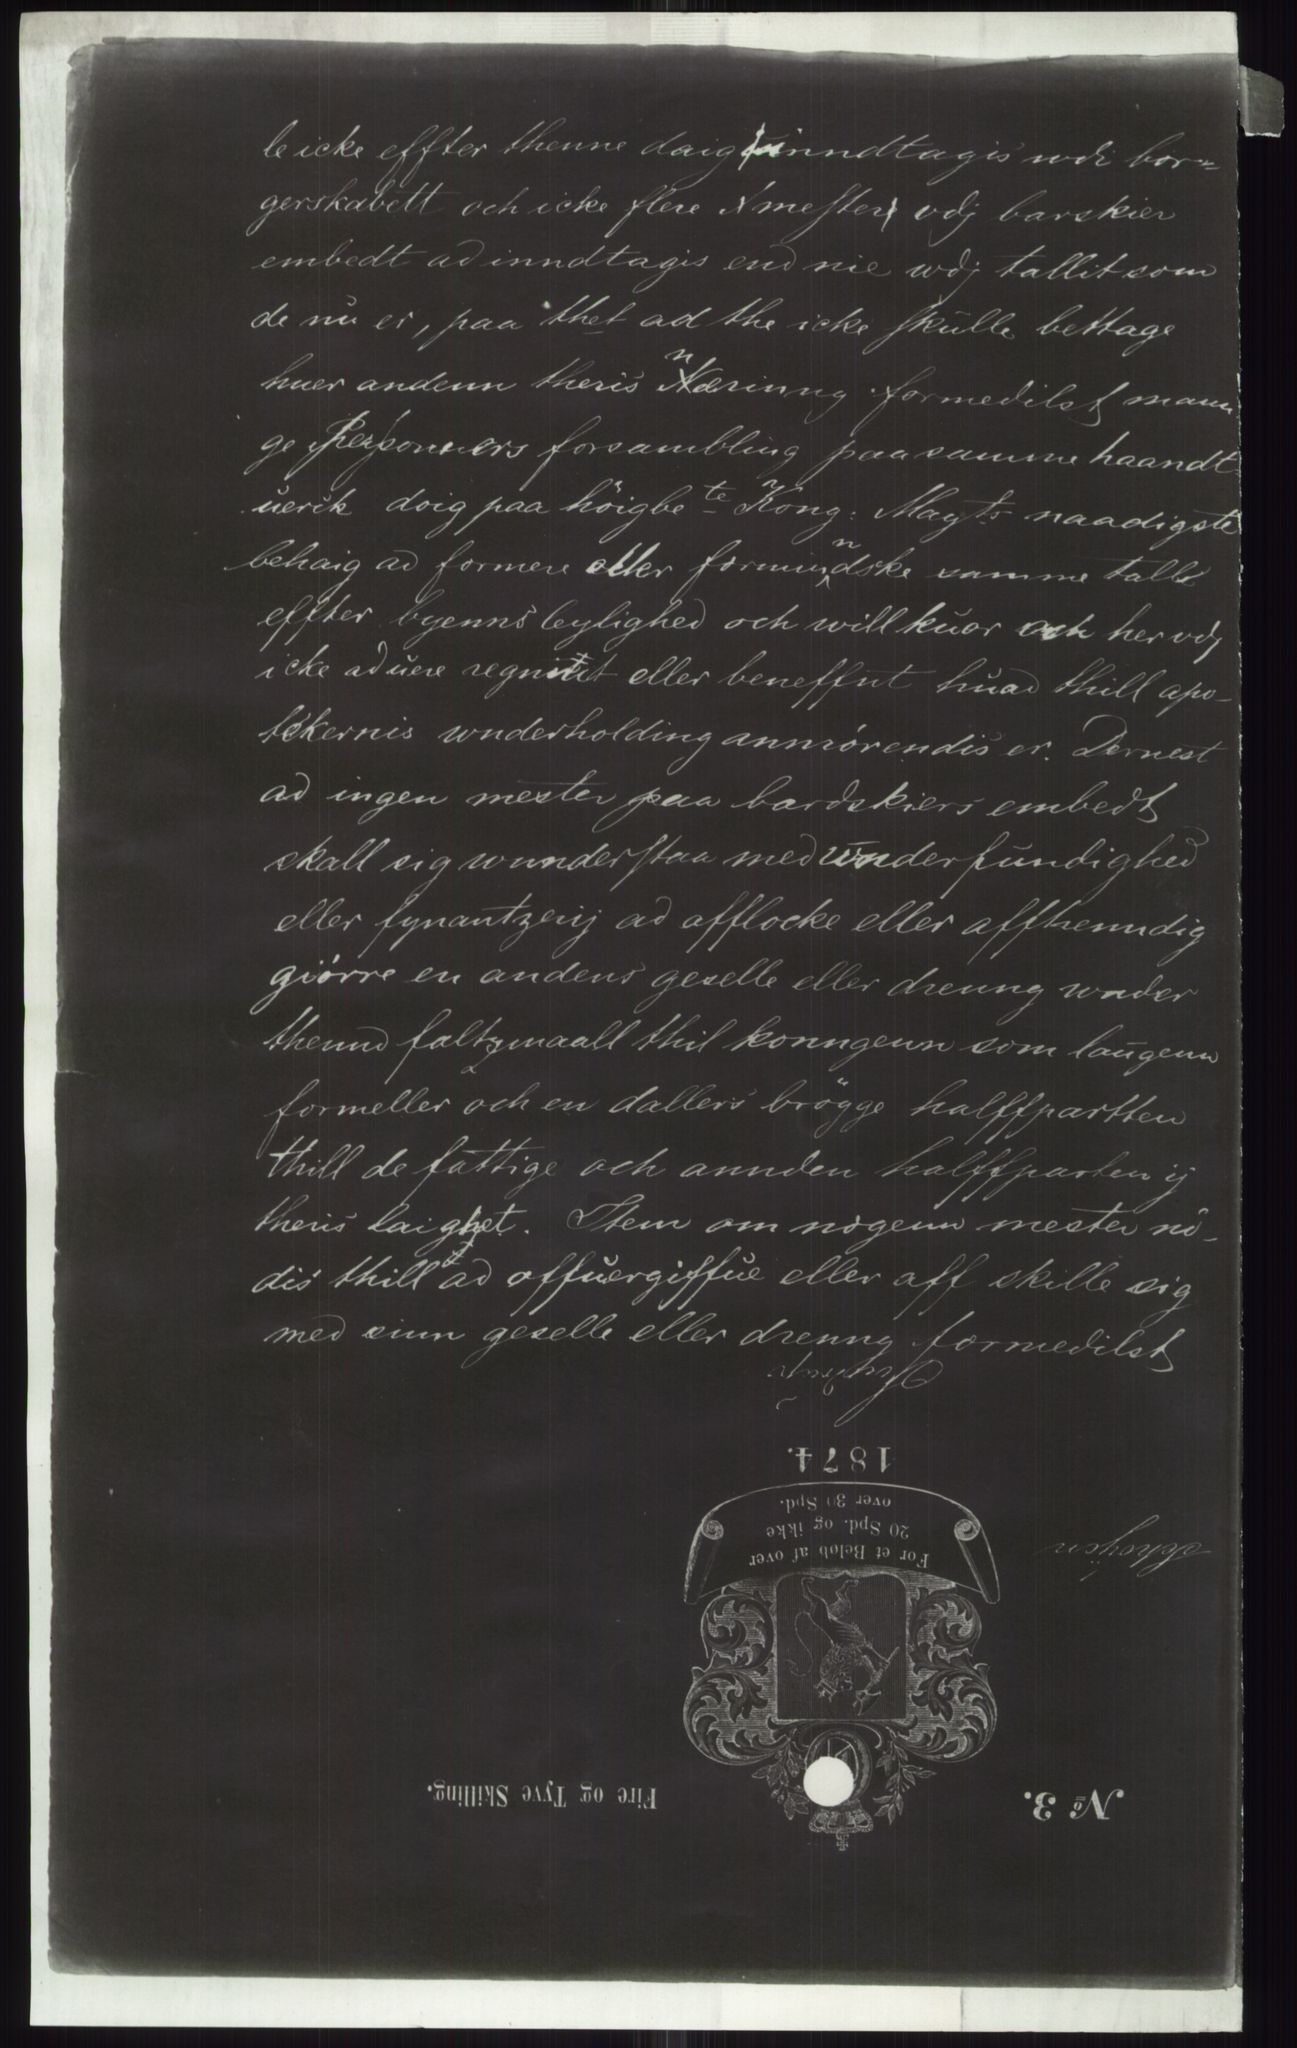 le icke effter thenne daig inndtagis udi bor-
gerskabett och icke flere mester vdj barskier
embedt ad inndtagis end nie wdj tallit som
de nu er, paa thet ad the icke skulle bettage
huer andenn theris næринng formedilst mann
ge Personners forsambling paa samme haandt
uerck doig paa höigbe te Kong: Mayts naadigste
behaig ad formere eller formindske samme talls
effter byenns leylighed och willkuor och her vdj
icke ad uere regnitt eller beneffnt huad thill apo-
tekernis wnderholding annrörendis er. Dernest
ad ingen mester paa bardskiers embedt
skall sig wunderstaa med wnderfundighed
eller fynantzerij ad afflocke eller affhenndig
giörre en andens geselle eller drenng wnder
thend faltzmaall thil konngenn som laugenn
formeller och en dallers brögge halffpartten
thill de fattige och annden halffparten ij
theris laighet. Item om nogenn mester nö-
dis thill ad offuergiffue eller aff skille sig
med sinn geselle eller drenng formedilst
1874.
For et Beløb af over
20 Spd. og ikke
over 30 Spd.
No 3.
Fire og Tyve Skilling.